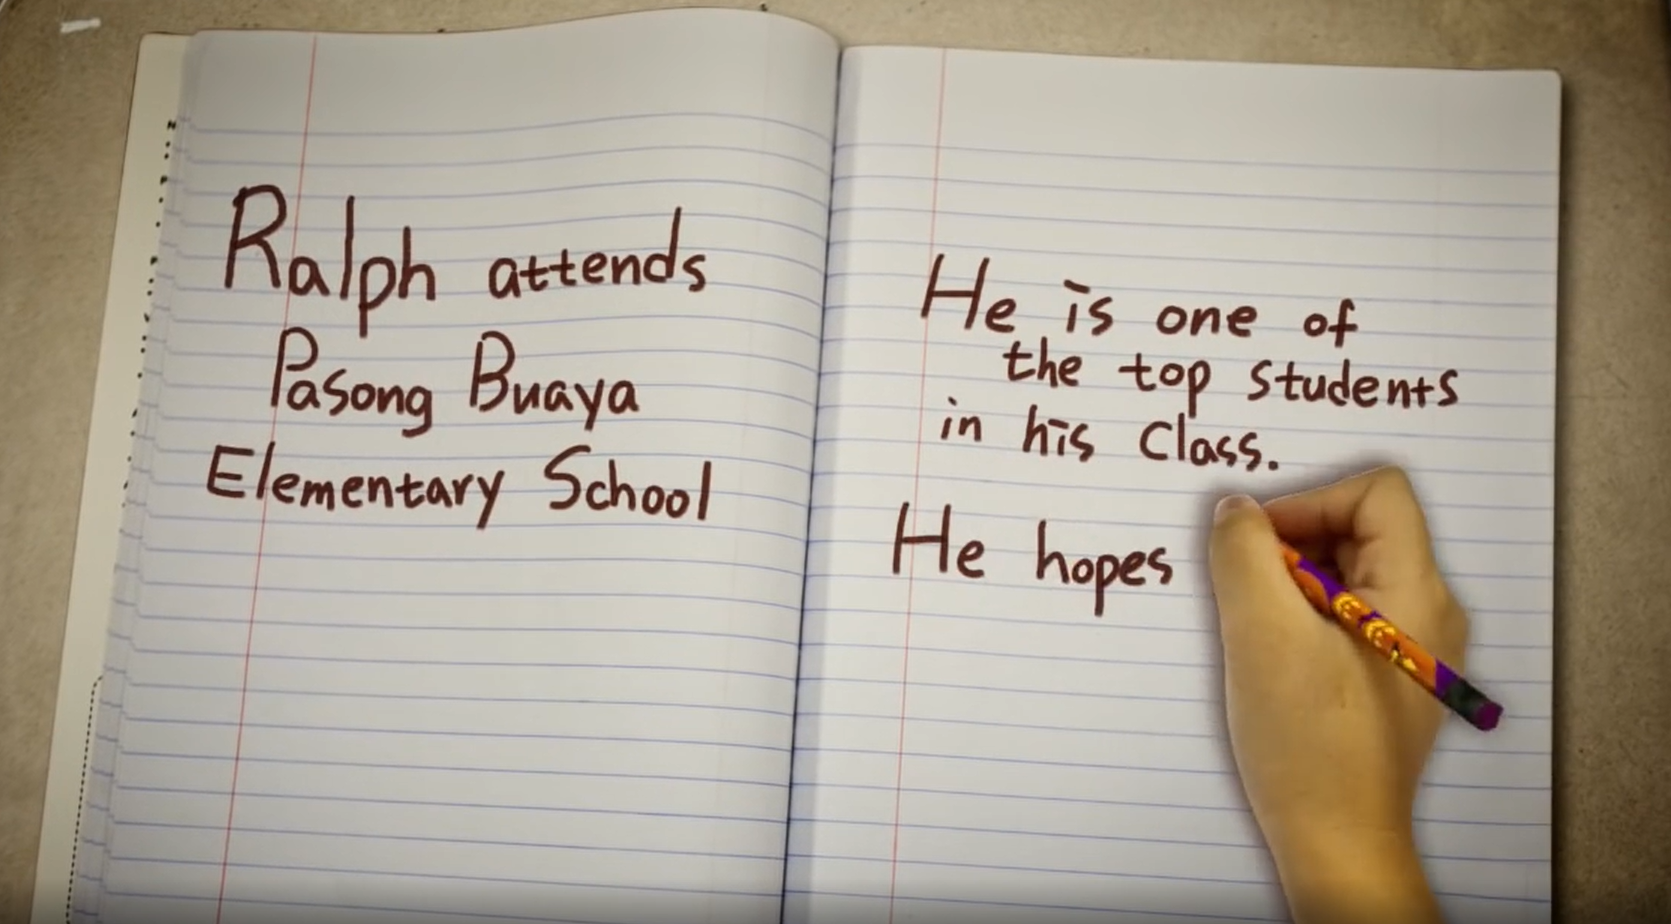 Ralph attends
Pasong Buaya
Elementary School
He is one of
the top students
in his Class.
He hopes